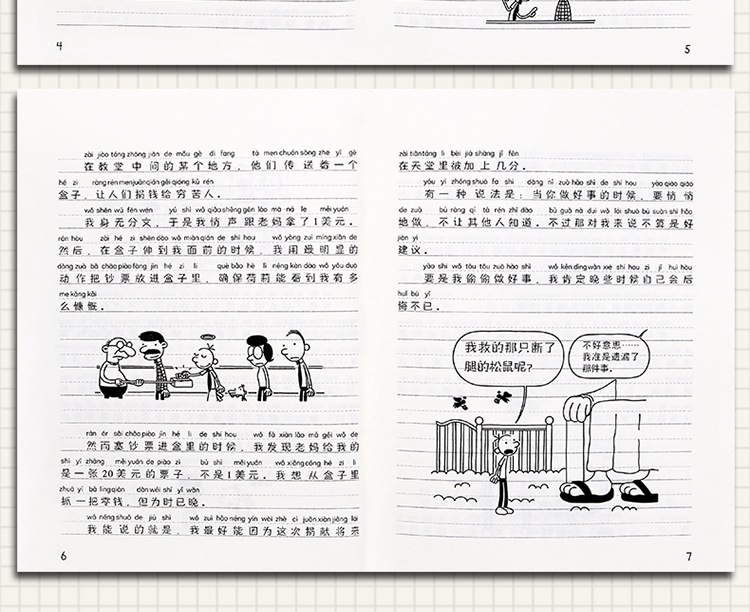 4
5
zài jiào táng zhōng jiān de mǒu gè dì fang tā men chuán sòng zhe yí gè
在教堂中间的某个地方，他们传送着一个
hé zi ràng rén men juān qián gěi qióng kǔ rén
盒子，让人们捐钱给穷苦人。
wǒ shēn wú fēn wén yú shì wǒ qiāo shēng gēn lǎo mā ná le měi yuán
我身无分文，于是我悄声跟老妈拿了1美元。
rán hòu zài hé zi shēn dào wǒ miàn qián de shí hou wǒ yòng zuì míng xiǎn de
然后，在盒子伸到我面前的时候，我用最明显的
dòng zuò bǎ chāo piào fàng jìn hé zi lǐ què bǎo hè lì néng kàn dào wǒ yǒu duō
动作把钞票放进盒子里，确保荷莉能看到我有多
me kāng kǎi
么慷慨。
rán ér sāi chāo piào jìn hé lǐ de shí hou wǒ fā xiàn lǎo mā gěi wǒ de
然而塞钞票进盒里的时候，我发现老妈给我的
shì yì zhāng měi yuán de piào zi bú shì měi yuán wǒ xiǎng cóng hé zi lǐ
是一张20美元的票子，不是1美元。我想从盒子里
zhuā yì bǎ líng qián dàn wéi shí yǐ wǎn
抓一把零钱，但为时已晚。
wǒ néng shuō de jiù shì wǒ zuì hǎo néng yīn wèi zhè cì juān xiàn jiāng lái
我能说的就是，我最好能因为这次捐献将来
6
zài tiān táng lǐ bèi jiā shàng jǐ fēn
在天堂里被加上几分。
yǒu yì zhǒng shuō fǎ shì dāng nǐ zuò hǎo shì de shí hou yào qiāo qiāo
有一种说法是：当你做好事的时候，要悄悄
de zuò bú ràng qí tā rén zhī dào bú guò nà duì wǒ lái shuō bú suàn shì hǎo
地做，不让其他人知道。不过那对我来说不算是好
jiàn yì
建议。
yào shì wǒ tōu tōu zuò hǎo shì wǒ kěn dìng wǎn xiē shí hou zì jǐ huì hòu
要是我偷偷做好事，我肯定晚些时候自己会后
huǐ bù yǐ
悔不已。
我救的那只断了
腿的松鼠呢？
不好意思……
我准是遗漏了
那件事。
7